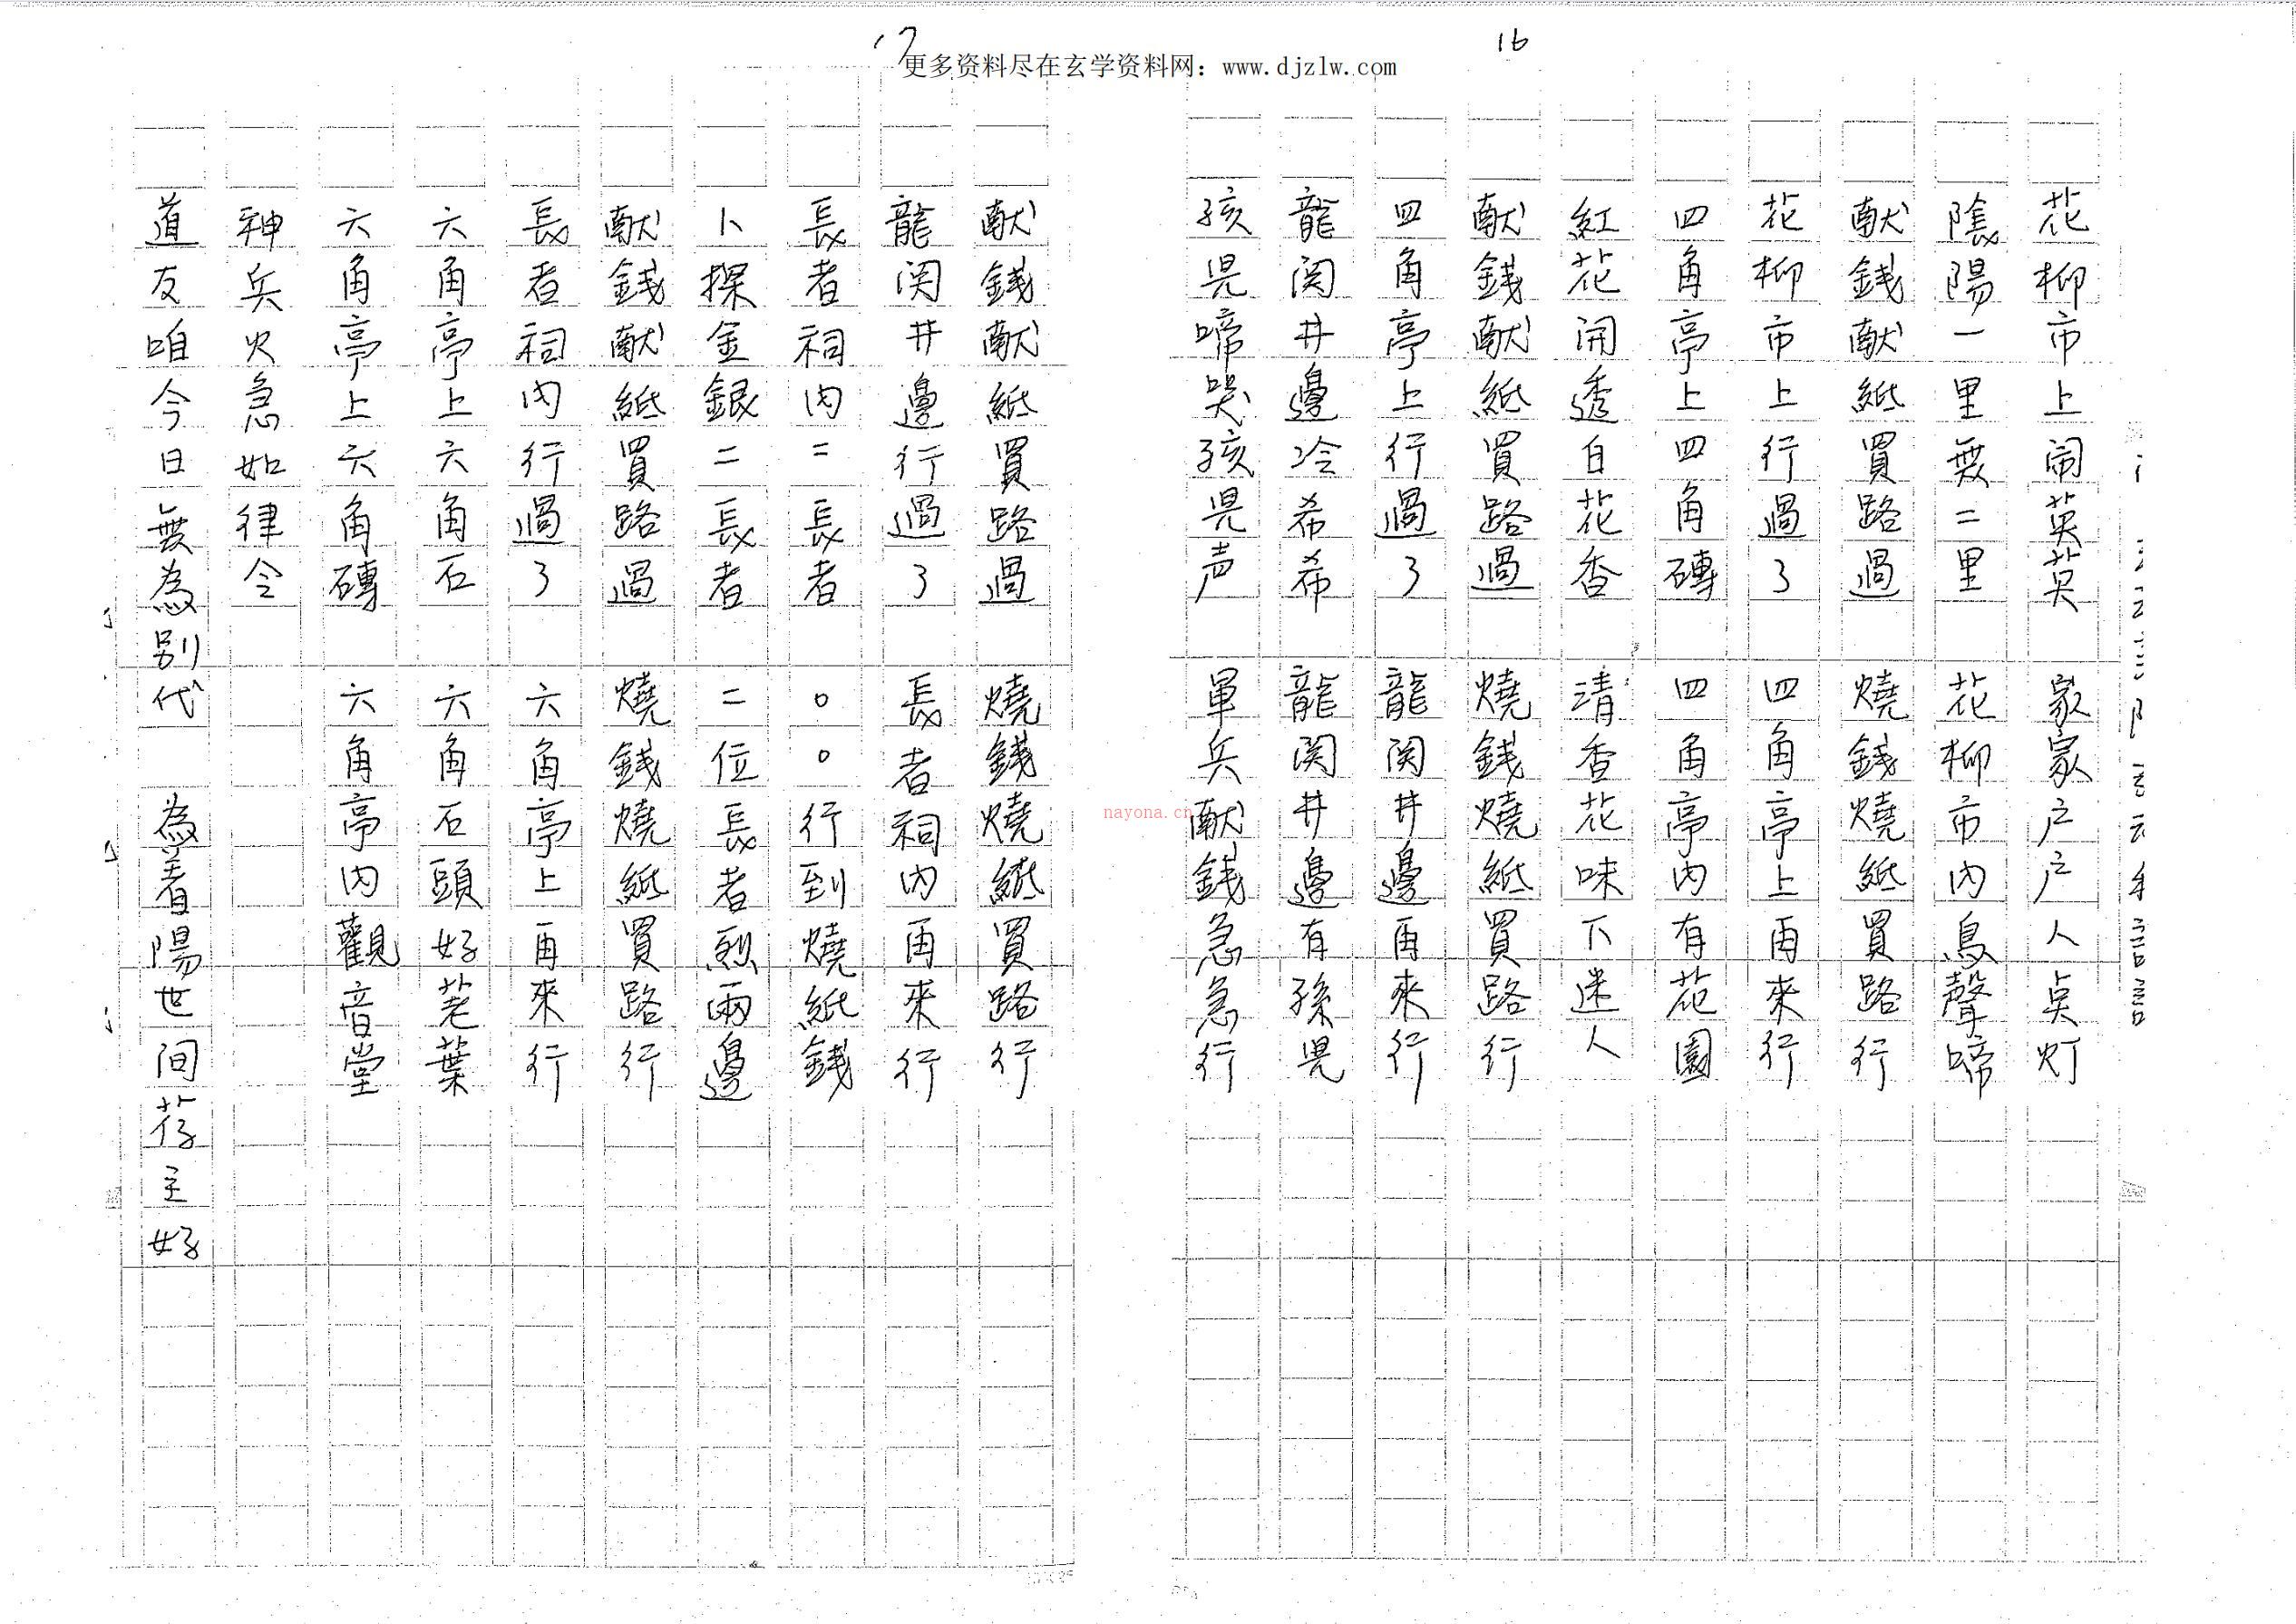 16
更多资料尽在玄学资料网：www.djzlw.com
花柳市上闹英英 家家户户人点灯
陰陽一里無二里 花柳市内鳥聲啼
献錢献紙買路過 燒錢燒紙買路行
花柳市上行過了 四角亭上再來行
四角亭上四角磚 四角亭内有花園
紅花開透白花香 清香花味下迷人
献錢献紙買路過 燒錢燒紙買路行
四角亭上行過了 龍関井邊再來行
龍関井邊冷希希 龍関井邊有孫児
孩児啼哭孩児声 軍兵献錢急急行
17
献錢献紙買路過 燒錢燒紙買路行
龍関井邊行過了 長者祠内再來行
長者祠内二長者 〇〇行到燒紙錢
卜探金銀二長者 二位長者烈兩邊
献錢献紙買路過 燒錢燒紙買路行
長者祠内行過了 六角亭上再來行
六角亭上六角石 六角石頭好荖葉
六角亭上六角磚 六角亭内觀音堂
神兵火急如律令
道友咱今日無為別代 為著陽世间芿主好
nayona.cn